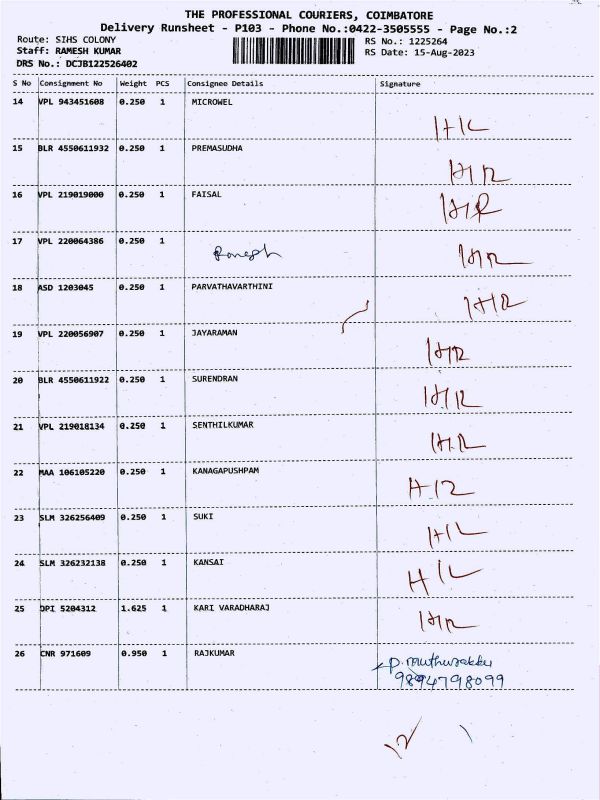 THE PROFESSIONAL COURIERS, COIMBATORE
Delivery Runsheet - P103 - Phone No.:0422-3505555 - Page No.:2
Route: SIHS COLONY RS No.: 1225264
Staff: RAMESH KUMAR RS Date: 15-Aug-2023
DRS No.: DCJB122526402
S No Consignment No Weight PCS Consignee Details Signature
14 VPL 943451608 0.250 1 MICROWEL
15 BLR 4550611932 0.250 1 PREMASUDHA
16 VPL 219019000 0.250 1 FAISAL
17 VPL 220064386 0.250 1
18 ASD 1203045 0.250 1 PARVATHAVARTHINI
19 VPL 220056907 0.250 1 JAYARAMAN
20 BLR 4550611922 0.250 1 SURENDRAN
21 VPL 219018134 0.250 1 SENTHILKUMAR
22 MAA 106105220 0.250 1 KANAGAPUSHPAM
23 SLM 326256409 0.250 1 SUKI
24 SLM 326232138 0.250 1 KANSAI
25 OPI 5204312 1.625 1 KARI VARADHARAJ
26 CNR 971609 0.950 1 RAJKUMAR
9894798099